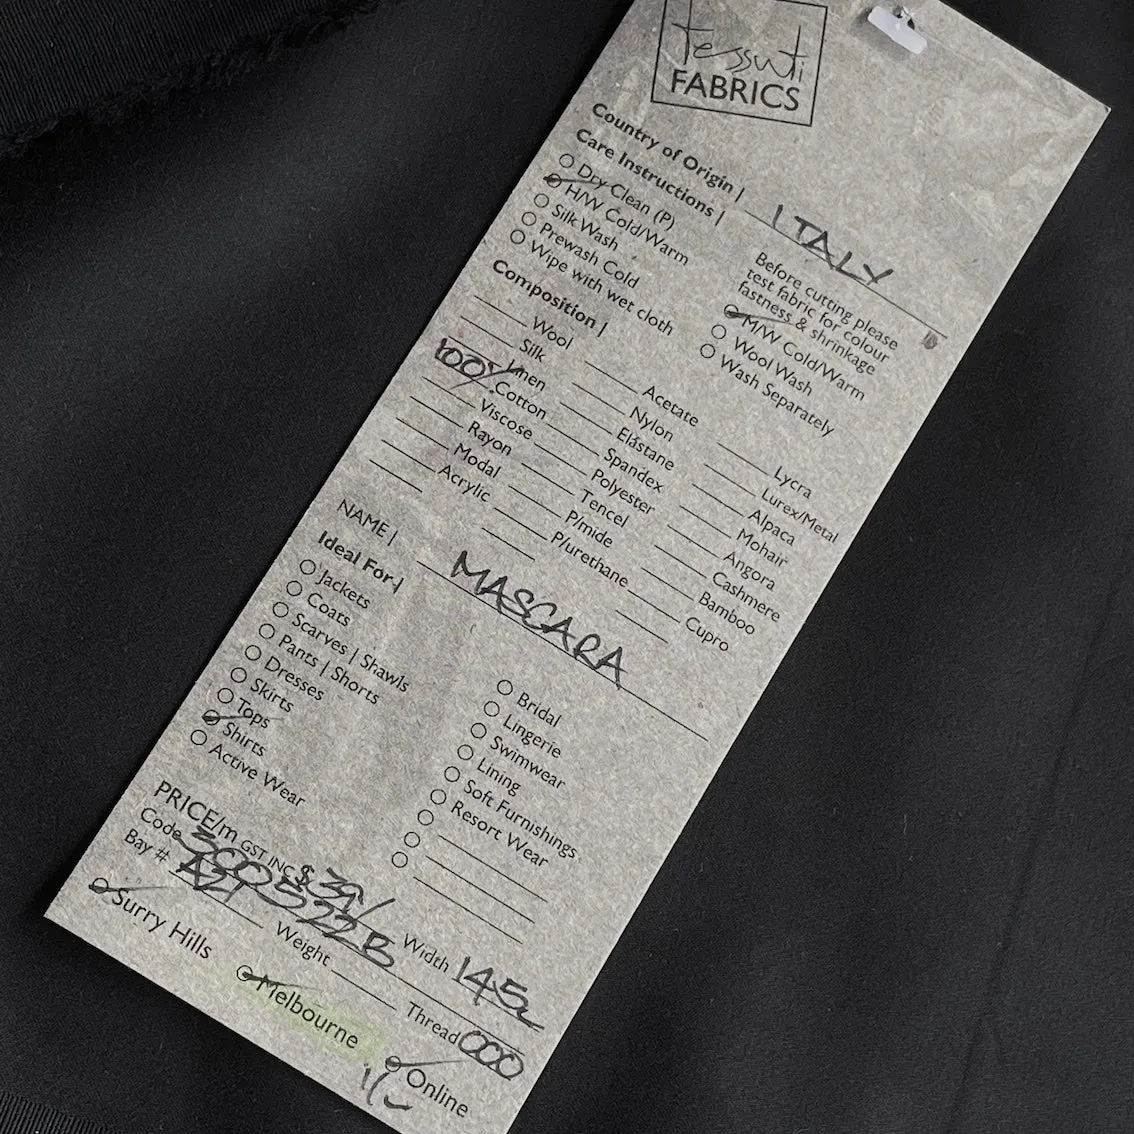 tessuti
FABRICS
Country of Origin | ITALY
Care Instructions |
Dry Clean (P)
H/W Cold/Warm
Silk Wash
Prewash Cold
Wipe with wet cloth
Before cutting please
test fabric for colour
fastness & shrinkage
M/W Cold/Warm
Wool Wash
Wash Separately
Composition |
Wool
Silk
Linen
100% Cotton
Viscose
Rayon
Modal
Acrylic
Acetate
Nylon
Elastane
Spandex
Polyester
Tencel
P/mide
P/urethane
Lycra
Lurex/Metal
Alpaca
Mohair
Angora
Cashmere
Bamboo
Cupro
NAME | MASCARA
Ideal For |
Jackets
Coats
Scarves | Shawls
Pants | Shorts
Dresses
Skirts
Tops
Shirts
Active Wear
Bridal
Lingerie
Swimwear
Lining
Soft Furnishings
Resort Wear
PRICE/m GST INC $39/
Code 300522B Width 145
Bay # Weight Thread 000
Surry Hills
Melbourne
Online